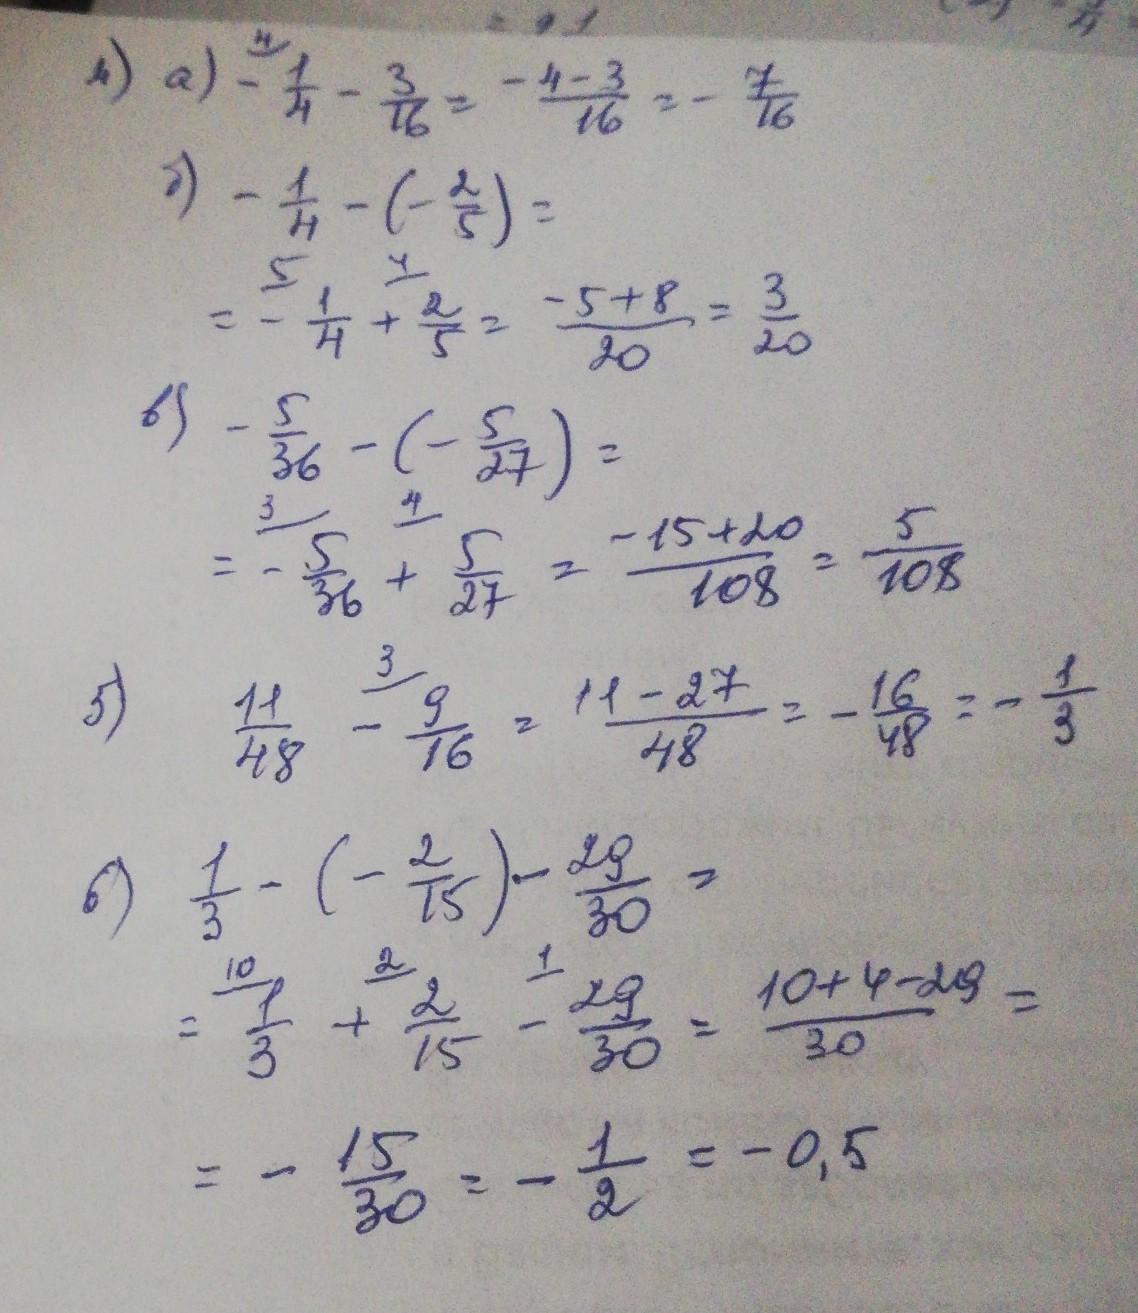 4) а) - 1/4 - 3/16 = (-4-3)/16 = - 7/16
б) - 1/4 - (- 2/5) =
= - 1/4 + 2/5 = (-5+8)/20 = 3/20
в) - 5/36 - (- 5/27) =
= - 5/36 + 5/27 = (-15+20)/108 = 5/108
5) 11/48 - 9/16 = (11-27)/48 = - 16/48 = - 1/3
6) 1/3 - (- 2/15) - 29/30 =
= 1/3 + 2/15 - 29/30 = (10+4-29)/30 =
= - 15/30 = - 1/2 = -0,5